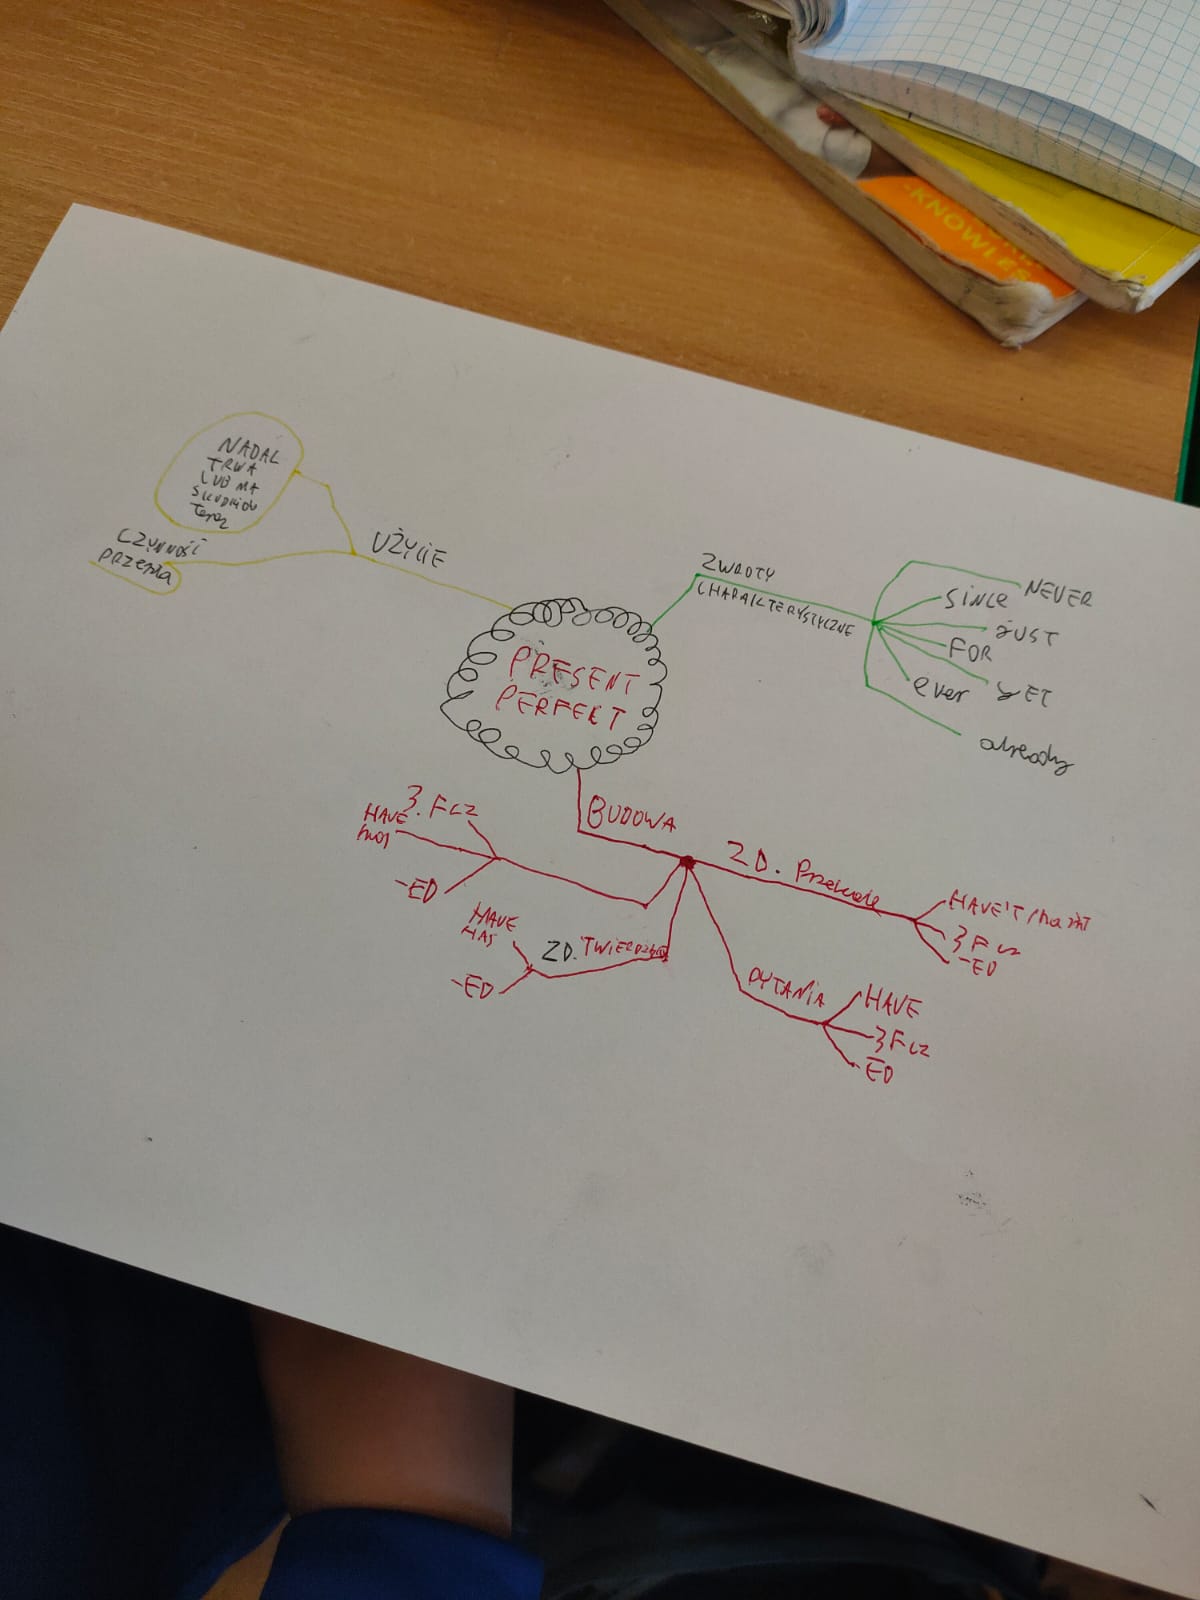 KNOWLE
NADAL
TRWA
LUB MA
teraz
CZYNNOŚĆ
PRZESZŁA
UŻYCIE
ZWROTY
CHARAKTERYSTYCZNE
NEVER
SINCE
JUST
FOR
YET
ever
already
PRESENT
PERFEKT
BUDOWA
3. F CZ
HAVE
-ED
HAVE
HAS
ZD. TWIERDZĄCE
-ED
ZD.
HAVE'T / hasn't
3 F CZ
-ED
PYTANIA
HAVE
3 F CZ
-ED